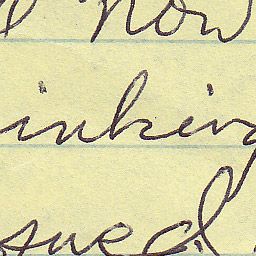 now
inking
sued